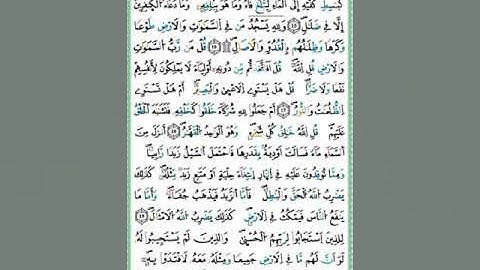 كَبَٰسِطِ كَفَّيْهِ إِلَى اَ۬لْمَآءِ لِيَبْلُغَ فَاهُ وَمَا هُوَ بِبَٰلِغِهِۦ وَمَا دُعَآءُ اُ۬لْكٰ۪فِرِينَ
إِلَّا فِے ضَلَٰلٖ وَلِلهِ يَسْجُدُ مَن فِے اِ۬لسَّمَٰوَٰتِ وَالَارْضِ طَوْعاٗ
وَكَرْهاٗ وَظِلَٰلُهُم بِالْغُدُوِّ وَالَاصَالِ قُلْ مَن رَّبُّ اُ۬لسَّمَٰوَٰتِ
وَالَارْضِ قُلِ اِ۬للَّهُ قُلَ اَفَاتَّخَذتُّم مِّن دُونِهِۦٓ أَوْلِيَآءَ لَا يَمْلِكُونَ لِأَنفُسِهِمْ
نَفْعاٗ وَلَا ضَرّاٗ قُلْ هَلْ يَسْتَوِے اِ۬لَاعْم۪يٰ وَالْبَصِيرُ أَمْ هَلْ تَسْتَوِے
اِ۬لظُّلُمَٰتُ وَالنُّورُ أَمْ جَعَلُواْ لِلهِ شُرَكَآءَ خَلَقُواْ كَخَلْقِهِۦ فَتَشَٰبَهَ اَ۬لْخَلْقُ
عَلَيْهِمْ قُلِ اِ۬للَّهُ خَٰلِقُ كُلِّ شَےْءٖ وَهُوَ اَ۬لْوَٰحِدُ اُ۬لْقَهَّٰرُ أَنزَلَ مِنَ
اَ۬لسَّمَآءِ مَآءٗ فَسَالَتَ اَوْدِيَةُۢ بِقَدَرِهَا فَاحْتَمَلَ اَ۬لسَّيْلُ زَبَداٗ رَّابِياٗ
وَمِمَّا تُوقِدُونَ عَلَيْهِ فِے اِ۬لنّ۪ارِ اِ۪بْتِغَآءَ حِلْيَةٍ اَوْ مَتَٰعٖ زَبَدٞ مِّثْلُهُۥ كَذَٰلِكَ
يَضْرِبُ اُ۬للَّهُ اُ۬لْحَقَّ وَالْبَٰطِلَ فَأَمَّا اَ۬لزَّبَدُ فَيَذْهَبُ جُفَآءٗ وَأَمَّا مَا
يَنفَعُ اُ۬لنَّاسَ فَيَمْكُثُ فِے اِ۬لَارْضِ كَذَٰلِكَ يَضْرِبُ اُ۬للَّهُ اُ۬لَامْثَالَ
لِلذِينَ اَ۪سْتَجَابُواْ لِرَبِّهِمُ اُ۬لْحُسْن۪يٰ وَالذِينَ لَمْ يَسْتَجِيبُواْ لَهُۥ
لَوَ اَنَّ لَهُم مَّا فِے اِ۬لَارْضِ جَمِيعاٗ وَمِثْلَهُۥ مَعَهُۥ لَافْتَدَوْاْ بِهِۦٓ